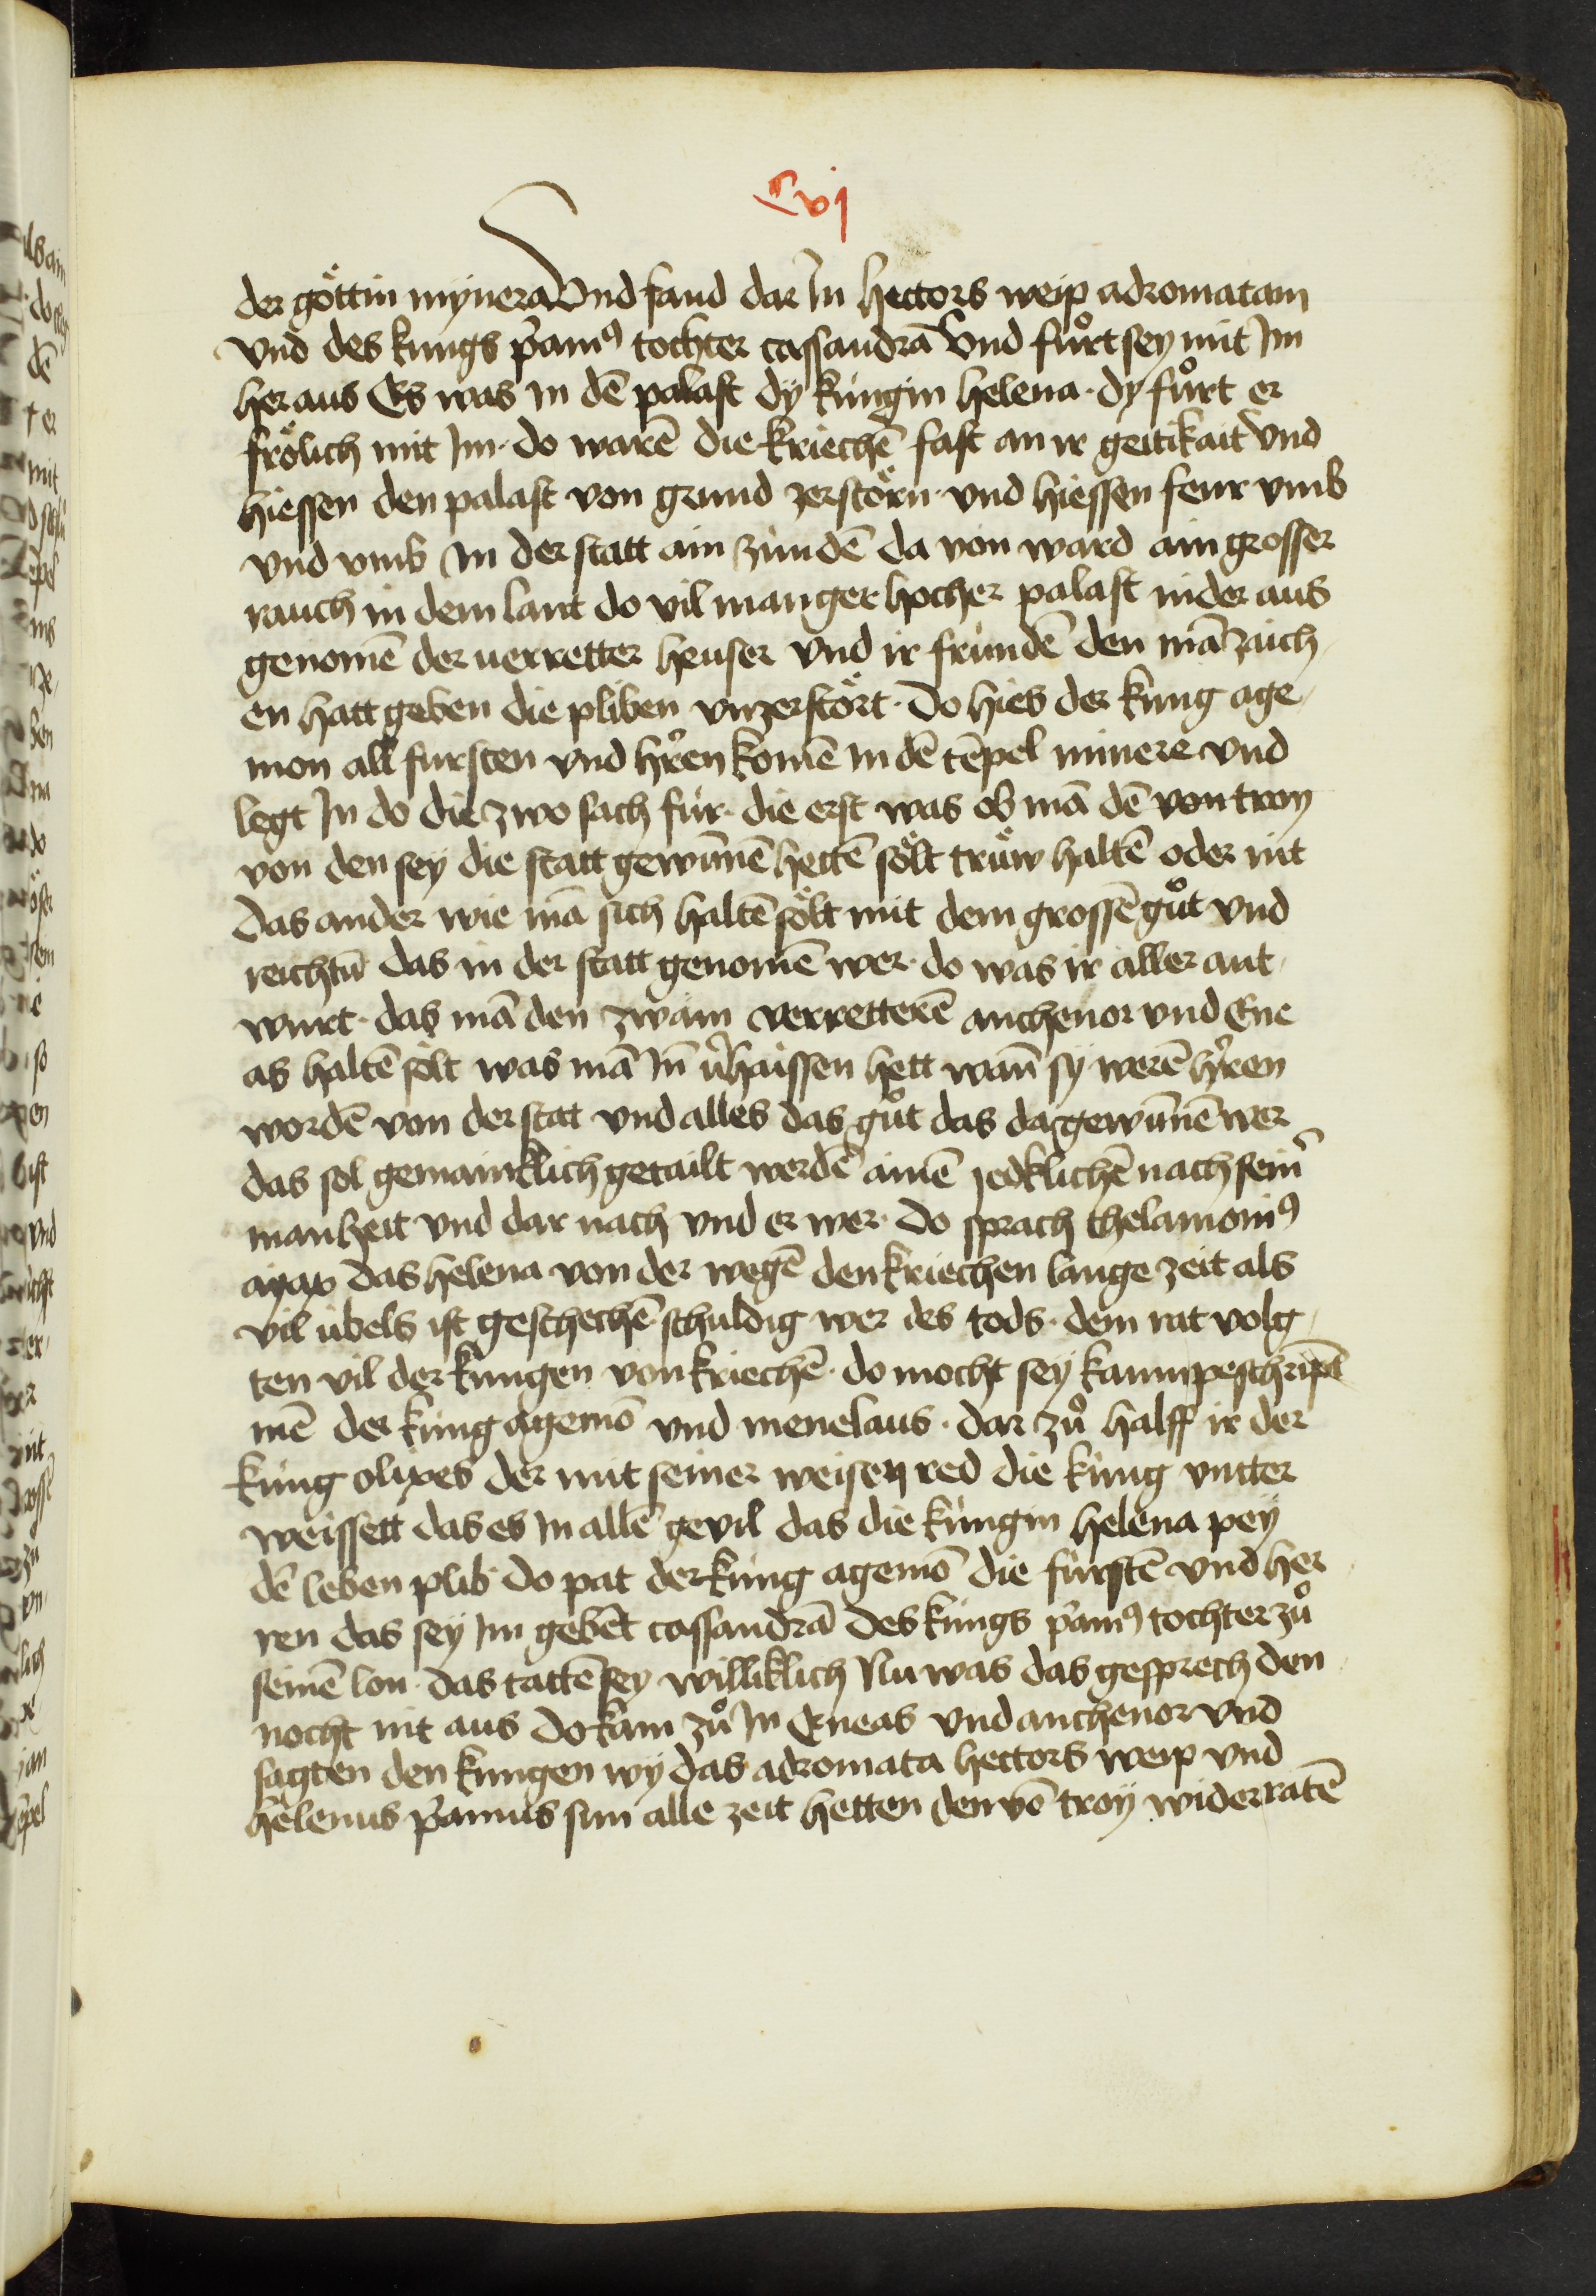 Cvj
der göttin mynera Und fand dar In hectors weip adromatam
vnd des kungs p̄amꝰ tochter cassandrā Vnd fůrt sey mit Im
her aus Es was in dē palast dy küngin helena · dy fůrt er
frölich mit Im · do warē die kriechē fast an ir geitikait vnd
hiessen den palast von grund zerstörn · vnd hiessen feur vmb
vnd vmb In der statt ain zündē da von ward ain grosser
rauch in dem lant do vil manger hocher palast nider aus
genomē der uerretter heuser vnd ir fründē den mā zaich
en hatt geben die pliben vnzerstört · do hies der kung age
mon all fursten vnd hr̄en komē in dē tēpel minere vnd
legt In do die zwo sach für · die erst was ob mā dē von troy
von den sey die statt gewūnē hettē sölt trüw haltē oder nit
das ander wie mā sich haltē sölt mit dem grossē gůt vnd
reichtū das in der statt genomē wer · do was ir aller ant
wurt · das mā den zwäin verretterē anthenor vnd Ene
as haltē sölt was mā In v̄haissen hett wān sy werē hr̄en
wordē von der stat vnd alles das gůt das da gewūnē wer
das sol gemainklich getailt werdē ainē jedklichē nach sein̄
manheit vnd dar nach vnd er wer · do sprach thelamonꝰ
ayax das helena von der wegē den kriechen lange zeit als
vil übels ist geschechē schuldig wer des tods · dem rat volg
ten vil der kungen von kriechē · do mocht sey kaum peschirm̄
mē der küng agemō vnd menelaus · dar zů halff ir der
küng olixes der mit seiner weisen red die küng vntter
weissett das es In allē gevil das die küngin helena pey
dē leben plib · do pat der küng agemō die fürstē vnd her
ren das sey Im gebēt cassandrā des küngs p̄amꝰ tochter zů
seinē lon · das tattē sey williklich Nu was das gesprech den
nocht nit aus do kam zů In Eneas vnd anthenor vnd
sagten den kungen wy das adromata hectors weip vnd
helenus p̄amus sun alle zeit hetten den vō troy widerratē